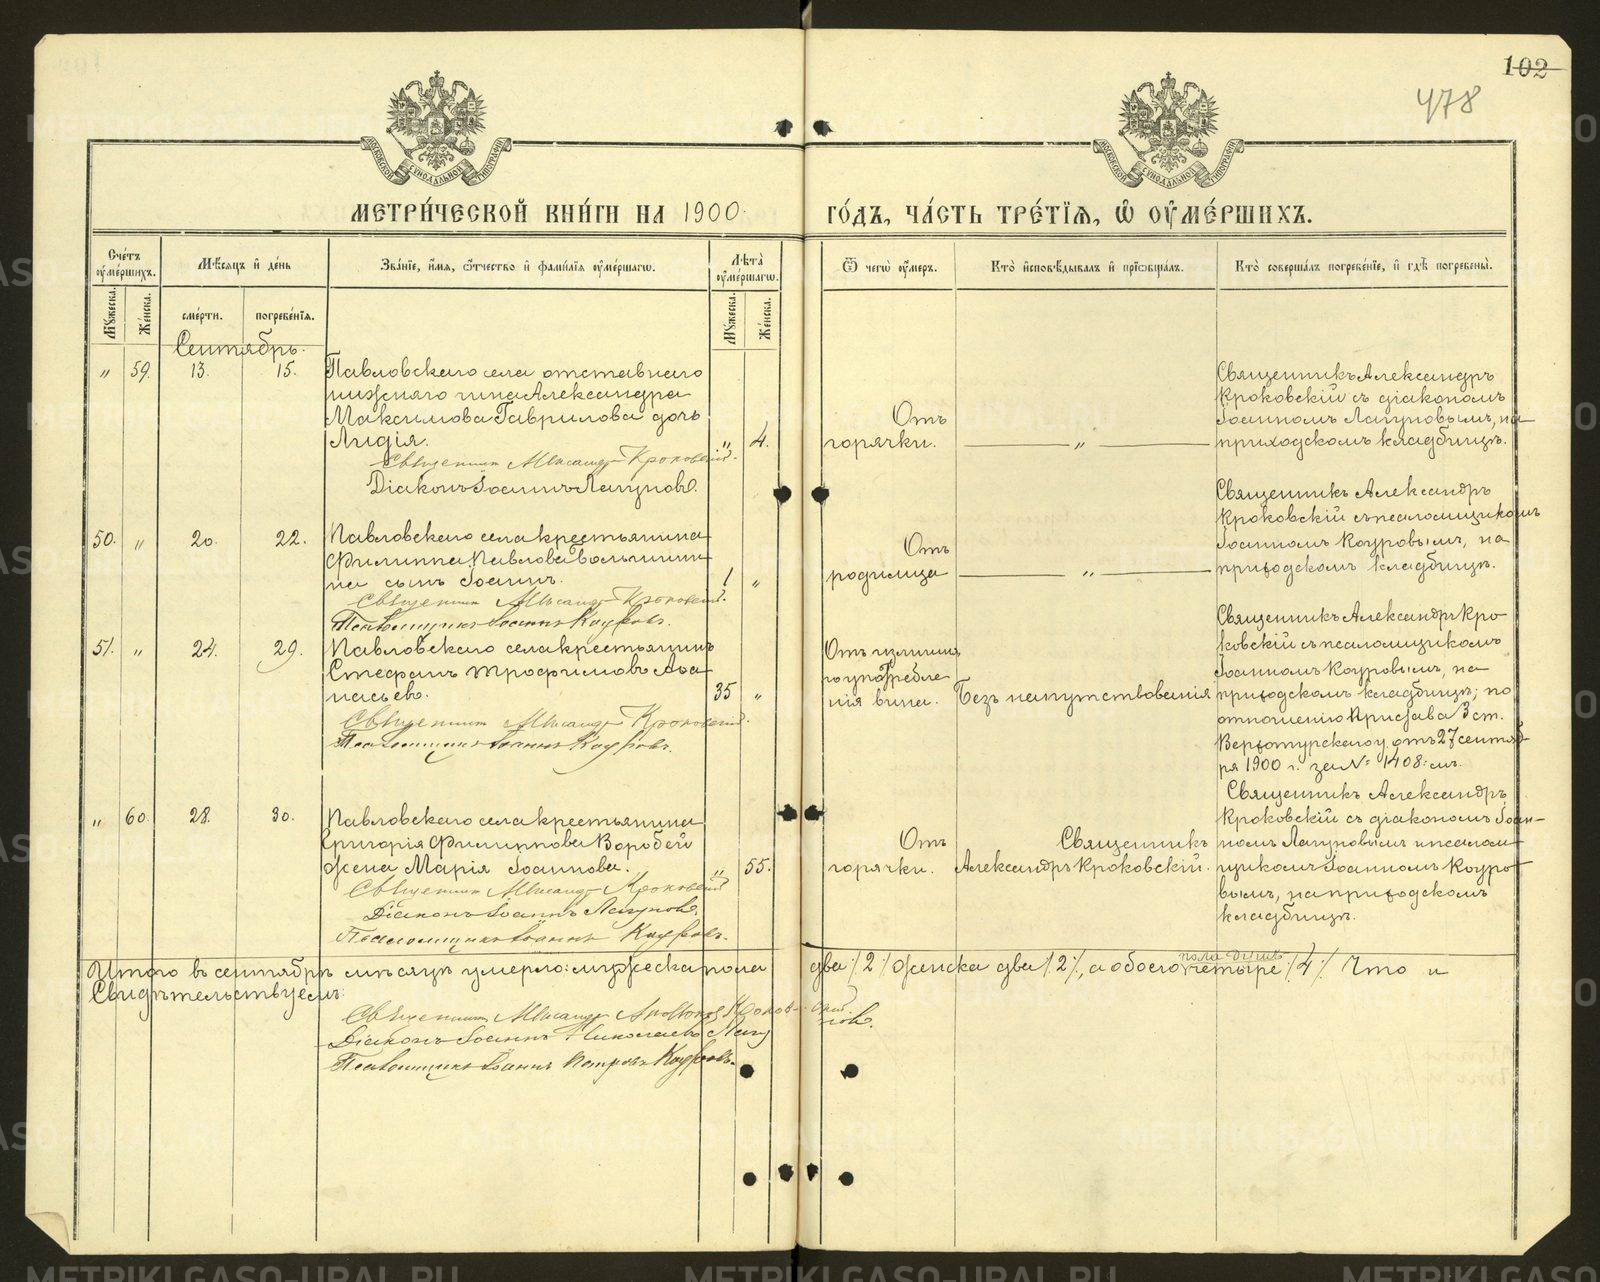 102
478
МЕТРИ́ЧЕСКОЙ КНИ́ГИ НА 1900.
ГО́ДЪ, ЧА́СТЬ ТРЕ́ТЇѦ, Ѡ҆ ОУ҆МЕ́РШИХЪ.
Сче́тъ оу҆ме́ршихъ.
Му́жеска.
Же́нска.
Мѣ́сяцъ и҆ де́нь
сме́рти.
погребе́нїѧ.
Зва́нїе, и҆́мѧ, ѻ҆́тчество и҆ фами́лїѧ оу҆ме́ршагѡ.
Лѣ́та оу҆ме́ршагѡ.
Му́жеска.
Же́нска.
Ѿ чегѡ̀ оу҆́меръ.
Кто̀ и҆сповѣ́дывалъ и҆ прїѡбща́лъ.
Кто̀ соверша́лъ погребе́нїе, и҆ гдѣ̀ погребены̀.
Сентябрь.
" 59. 13. 15.
Павловскаго села отставнаго
нижняго чина Александра
Максимова Гаврилова дочь
Лидія.
" 4.
Священник Александр Кроковский.
Діаконъ Іоаннъ Лагуновъ.
Отъ
горячки.
"
Священникъ Александръ
Кроковскій съ діакономъ
Іоанномъ Лагуновымъ, на
приходскомъ кладбищѣ.
50. " 20. 22.
Павловскаго села крестьянина
Филиппа Павлова Волынки-
на сынъ Іоаннъ.
1 "
Священник Александр Кроковский.
Псаломщикъ Іоаннъ Коуровъ.
Отъ
родимца
"
Священникъ Александръ
Кроковскій съ псаломщикомъ
Іоанномъ Коуровымъ, на
приходскомъ кладбищѣ.
51. " 24. 29.
Павловскаго села крестьянинъ
Стефанъ Трофимовъ Афа-
насьевъ.
35 "
Священник Александр Кроковский.
Псаломщикъ Іоаннъ Коуровъ.
Отъ излишня
го употребле
нія вина.
Безъ напутствованія
Священникъ Александръ Кро-
ковскій съ псаломщикомъ
Іоанномъ Коуровымъ, на
приходскомъ кладбищѣ; по
отношенію Пристава 3 ст.
Верхотурскаго у. отъ 27 сентяб-
ря 1900 г. за № 1408-мъ.
" 60. 28. 30.
Павловскаго села крестьянина
Григорія Филиппова Воробей
жена Марія Іоаннова.
" 55.
Священник Александр Кроковский
Діаконъ Іоаннъ Лагуновъ.
Псаломщикъ Іоаннъ Коуровъ.
Отъ
горячки.
Священникъ
Александръ Кроковскій.
Священникъ Александръ
Кроковскій съ діакономъ Іоан-
номъ Лагуновымъ и псалом-
щикомъ Іоанномъ Коуро-
вымъ, на приходскомъ
кладбищѣ.
Итого въ сентябрѣ мѣсяцѣ умерло: мужеска пола два /2/ женска два /2/, а обоего пола душъ четыре /4/. Что и
Свидѣтельствуемъ:
Діаконъ Іоаннъ Николаевъ Лагуновъ.
Псаломщикъ Іоаннъ Петровъ Коуровъ.
METRIKI.GASO-URAL.RU